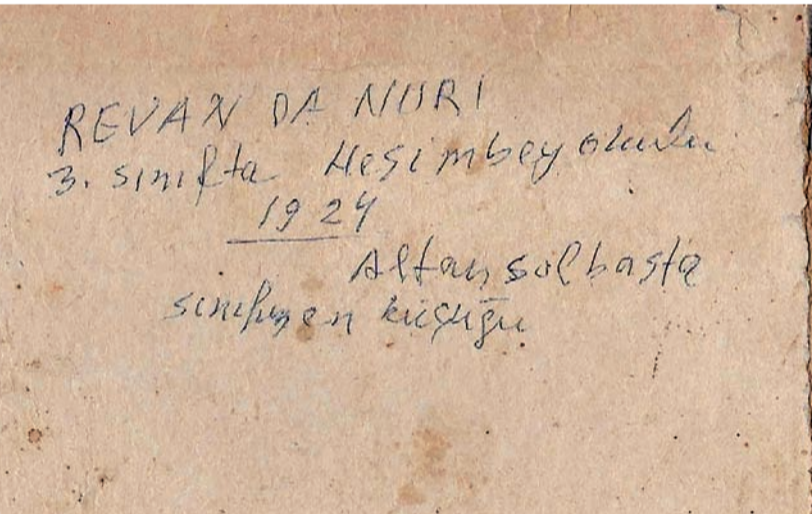 REVAN DA NURI
3. sınıfta Heşimbey okulu
1924
Altan sol başta
sınıfın en küçüğü